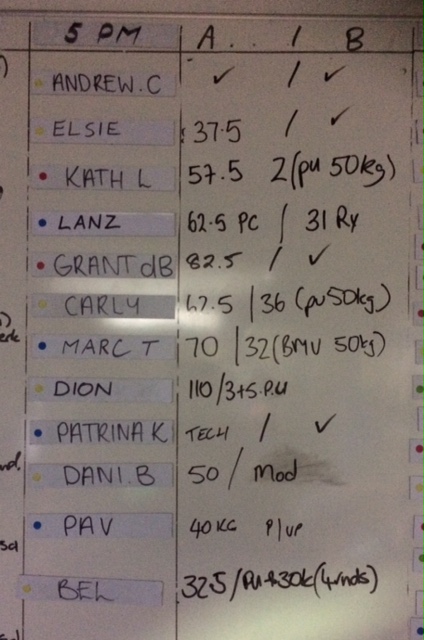 5 PM A. / B
ANDREW.C ✓ / ✓
ELSIE 37.5 / ✓
KATH L 57.5 2(pu 50kg)
LANZ 62.5 PC / 31 Rx
GRANT dB 82.5 / ✓
CARLY 47.5 / 36 (pu 50kg)
MARC T 70 / 32 (BMU 50kg)
DION 110/3+5.P.U
PATRINA K TECH / ✓
DANI.B 50 / Mod
PAV 40KG P/UP
BEL 32.5/